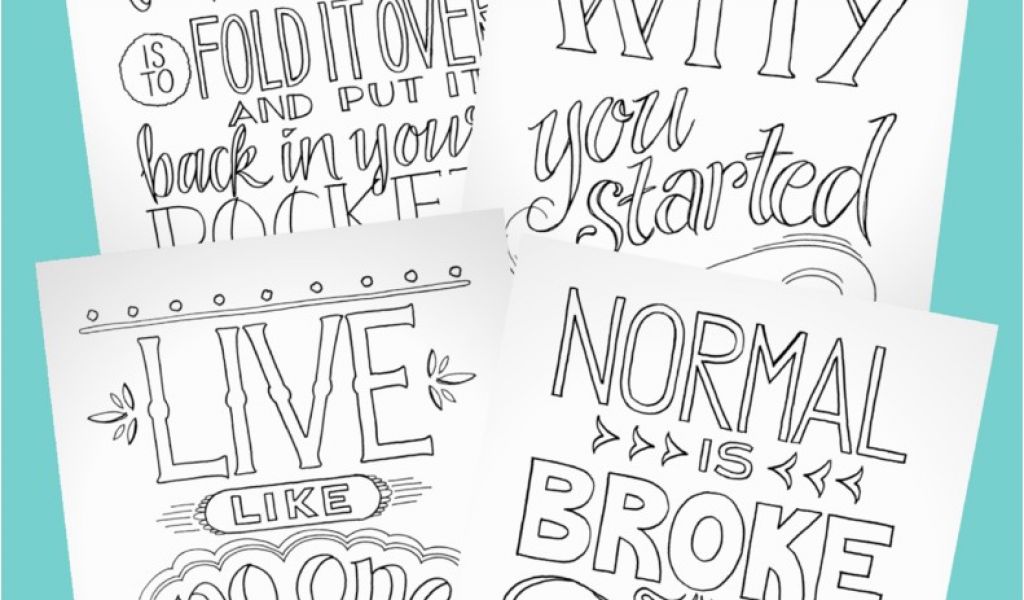 IS
TO
FOLD IT OVER
AND PUT IT
back in your
POCKET
WHY
you
started
LIVE
LIKE
no one
NORMAL
IS
BROKE